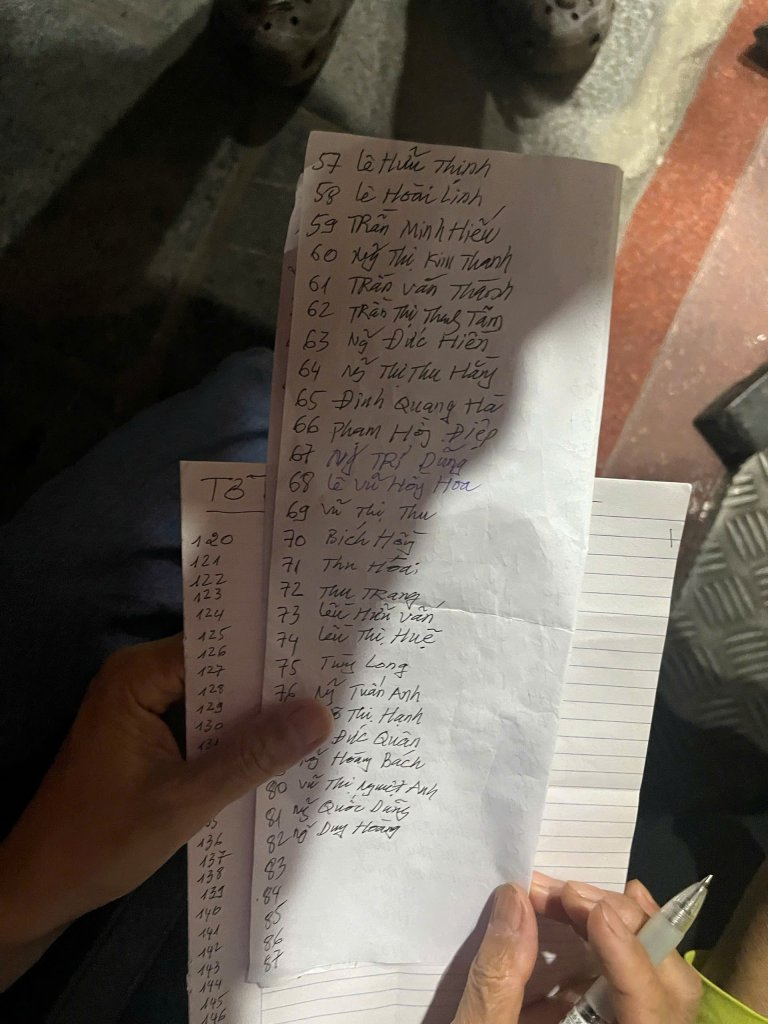 57 Lê Hữu Thịnh
58 Lê Hoài Linh
59 Trần Minh Hiếu
60 Ng̃ Thị Kim Thanh
61 Trần Văn Thành
62 Trần Thị Thanh Tâm
63 Ng̃ Đức Hiền
64 Ng̃ Thị Thu Hằng
65 Đinh Quang Hà
66 Phạm Hồng Điệp
67 Ng̃ Trí Dũng
68 Lê Vũ Hồng Hoa
69 Vũ Thị Thu
70 Bích Hồng
71 Thu Hoài
72 Thu Trang
73 Hữu Văn
74 Thị Huệ
75 Long
76 Ng̃ Tuấn Anh
Thị Hạnh
Đức Quân
Ng̃ Hoàng Bách
80 Vũ Thị Nguyệt Anh
81 Ng̃ Quốc Dũng
82 Ng̃ Duy Hoàng
83
84
85
86
87
120
121
122
123
124
125
126
127
128
129
130
136
137
138
139
140
141
142
143
144
145
146